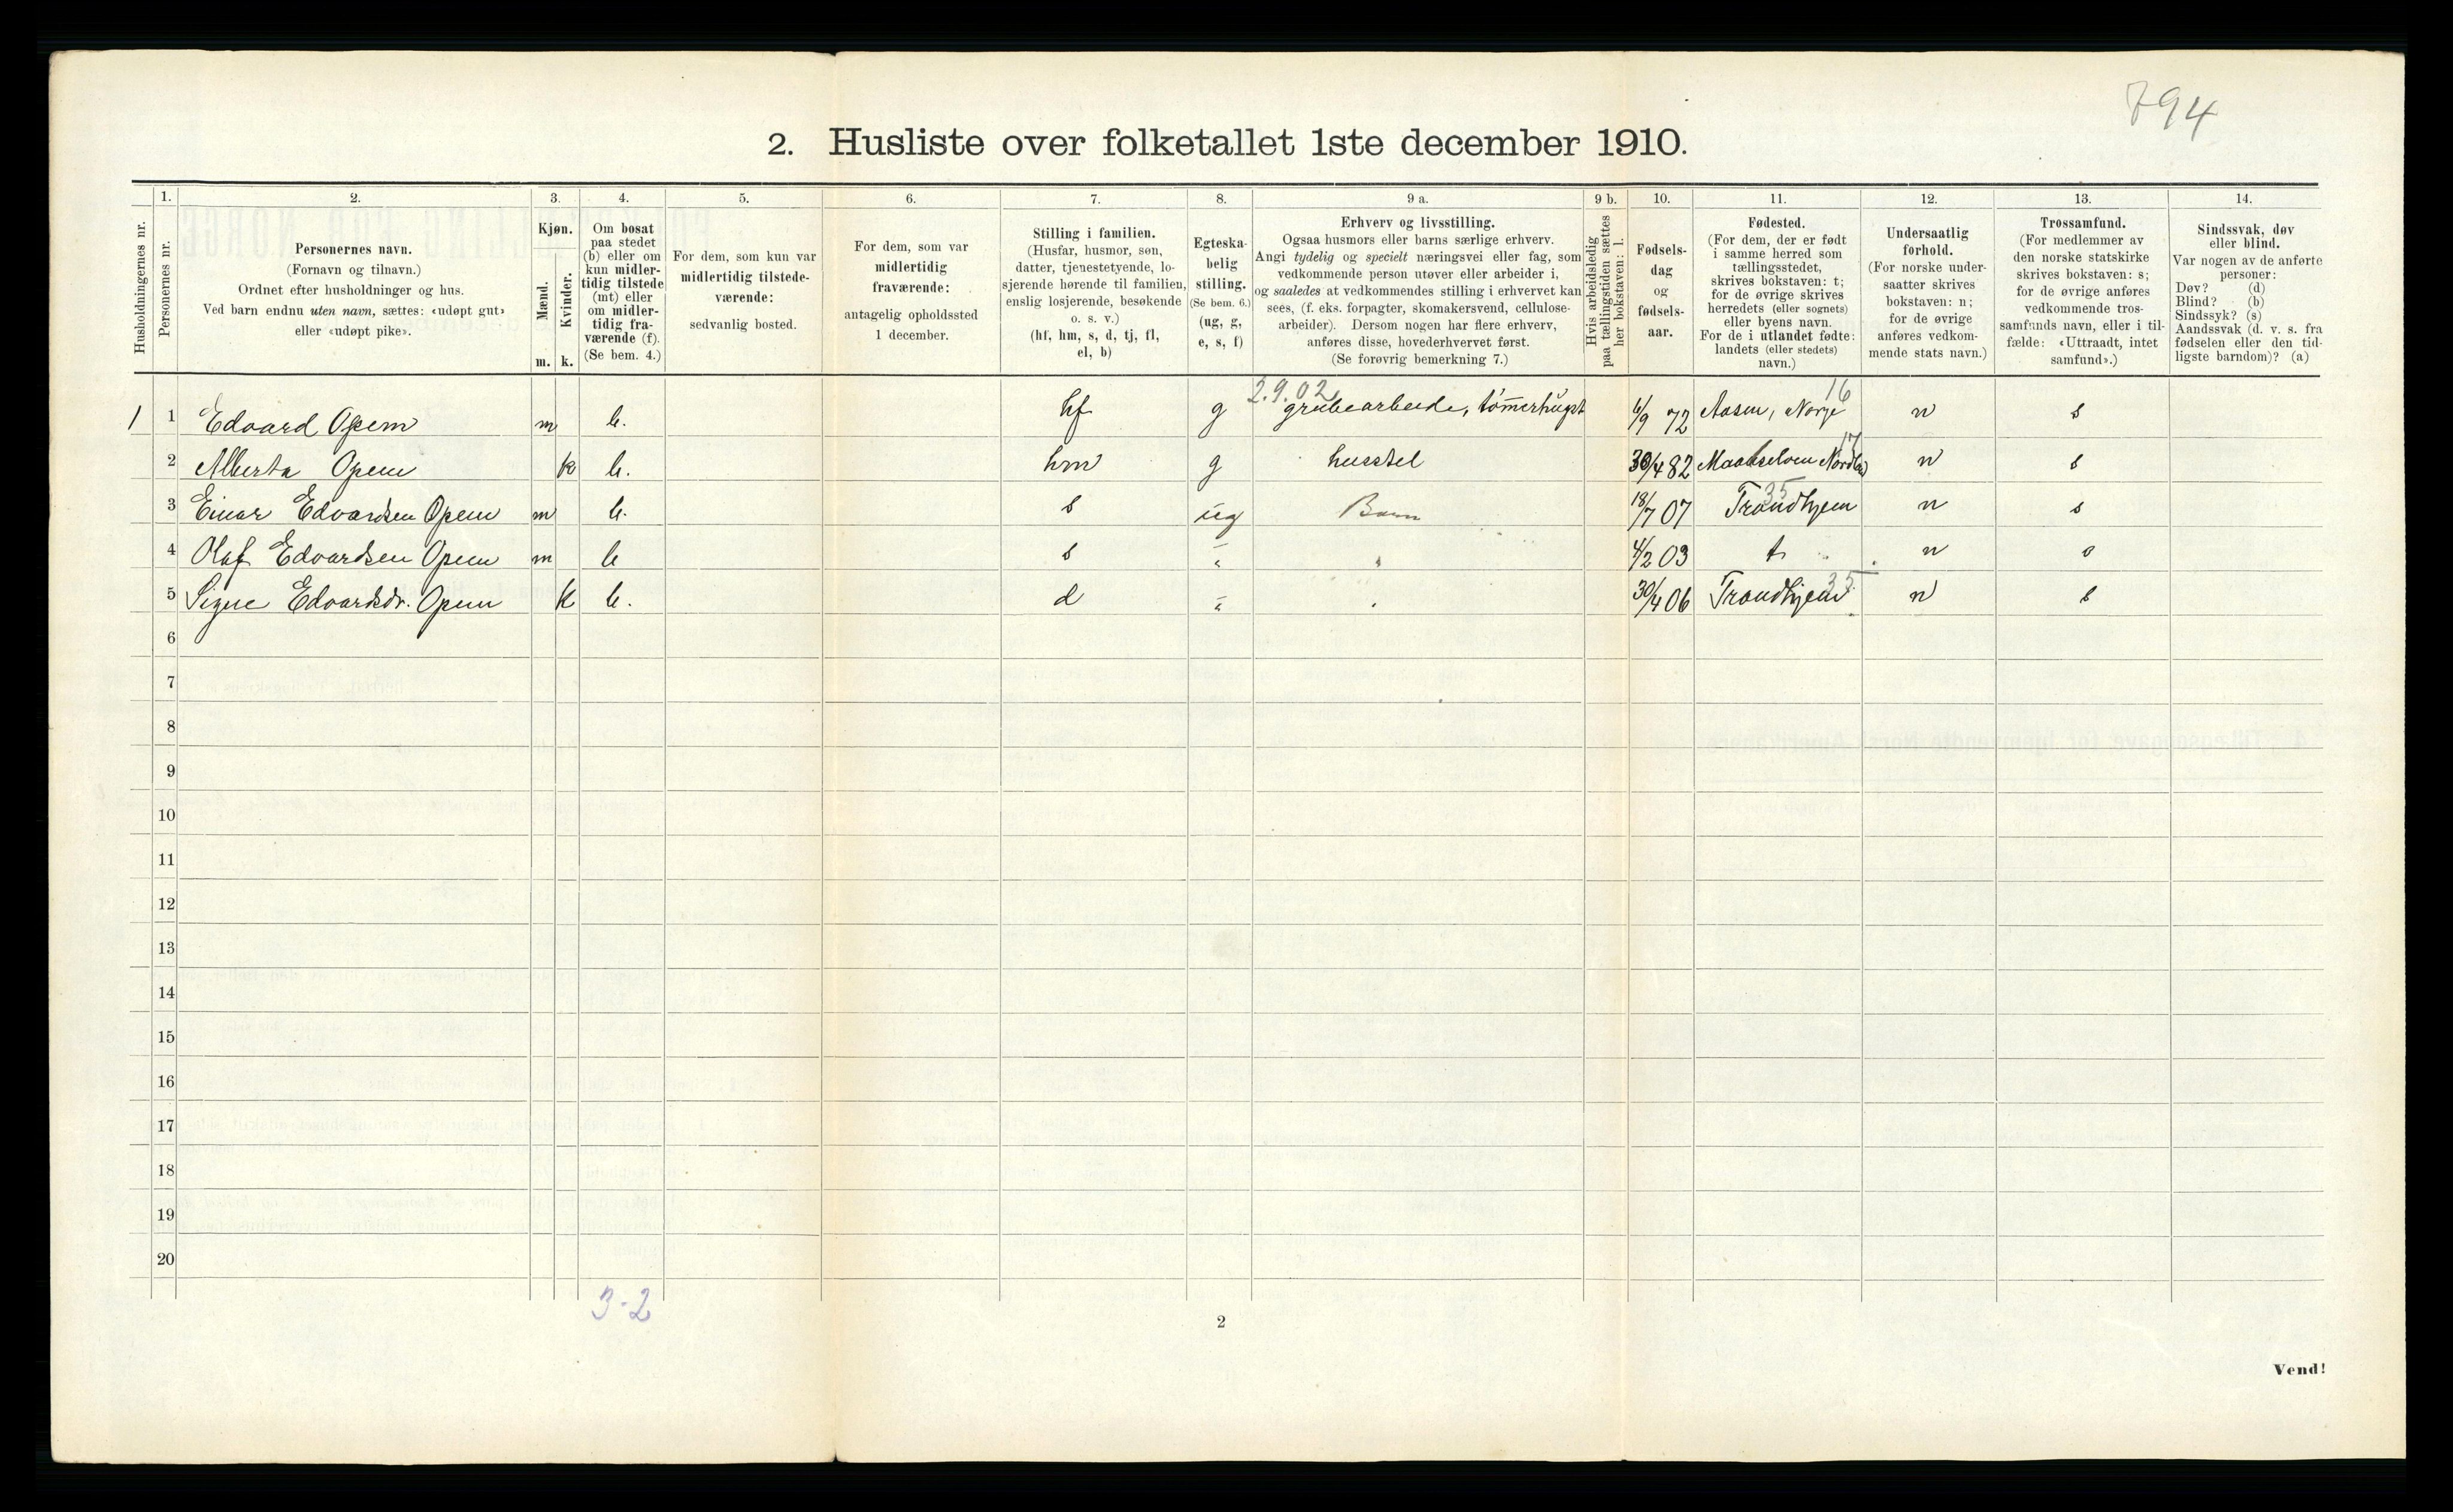 794
2. Husliste over folketallet 1ste december 1910.
Husholdningernes nr.
1.
Personernes nr.
2.
Personernes navn.
(Fornavn og tilnavn.)
Ordnet efter husholdninger og hus.
Ved barn endnu uten navn, sættes: «udøpt gut»
eller «udøpt pike».
3.
Kjøn.
Mænd.
m.
Kvinder.
k.
4.
Om bosat
paa stedet
(b) eller om
kun midler-
tidig tilstede
(mt) eller
om midler-
tidig fra-
værende (f).
(Se bem. 4.)
5.
For dem, som kun var
midlertidig tilstede-
værende:
sedvanlig bosted.
6.
For dem, som var
midlertidig
fraværende:
antagelig opholdssted
1 december.
7.
Stilling i familien.
(Husfar, husmor, søn,
datter, tjenestetyende, lo-
sjerende hørende til familien,
enslig losjerende, besøkende
o. s. v.)
(hf, hm, s, d, tj, fl,
el, b)
8.
Egteska-
belig
stilling.
(Se bem. 6.)
(ug, g,
e, s, f)
9 a.
Erhverv og livsstilling.
Ogsaa husmors eller barns særlige erhverv.
Angi tydelig og specielt næringsvei eller fag, som
vedkommende person utøver eller arbeider i,
og saaledes at vedkommendes stilling i erhvervet kan
sees, (f. eks. forpagter, skomakersvend, cellulose-
arbeider). Dersom nogen har flere erhverv,
anføres disse, hovederhvervet først.
(Se forøvrig bemerkning 7.)
9 b.
Hvis arbeidsledig
paa tællingstiden sættes
her bokstaven: l.
10.
Fødsels-
dag
og
fødsels-
aar.
11.
Fødested.
(For dem, der er født
i samme herred som
tællingsstedet,
skrives bokstaven: t;
for de øvrige skrives
herredets (eller sognets)
eller byens navn.
For de i utlandet fødte:
landets (eller stedets)
navn.)
12.
Undersaatlig
forhold.
(For norske under-
saatter skrives
bokstaven: n;
for de øvrige
anføres vedkom-
mende stats navn.)
13.
Trossamfund.
(For medlemmer av
den norske statskirke
skrives bokstaven: s;
for de øvrige anføres
vedkommende tros-
samfunds navn, eller i til-
fælde: «Uttraadt, intet
samfund».)
14.
Sindssvak, døv
eller blind.
Var nogen av de anførte
personer:
Døv? (d)
Blind? (b)
Sindssyk? (s)
Aandssvak (d. v. s. fra
fødselen eller den tid-
ligste barndom)? (a)
2.9.02 16
1 1 Edvard Opem m b. hf g grubearbeide, tømerhugst 6/9 72 Aasen, Norge n s
17
2 Alberta Opem k b. hm g husstel 30/4 82 Maalselven Nordld n s
35
3 Einar Edvardsen Opem m b. s ug Barn 18/7 07 Trondhjem n s
4 Olaf Edvardsen Opem m b s " " 4/2 03 t n s
35
5 Signe Edvardsdr. Opem k b. d " " 30/4 06 Trondhjem n s
6
7
8
9
10
11
12
13
14
15
16
17
18
19
20
3-2
2
Vend!